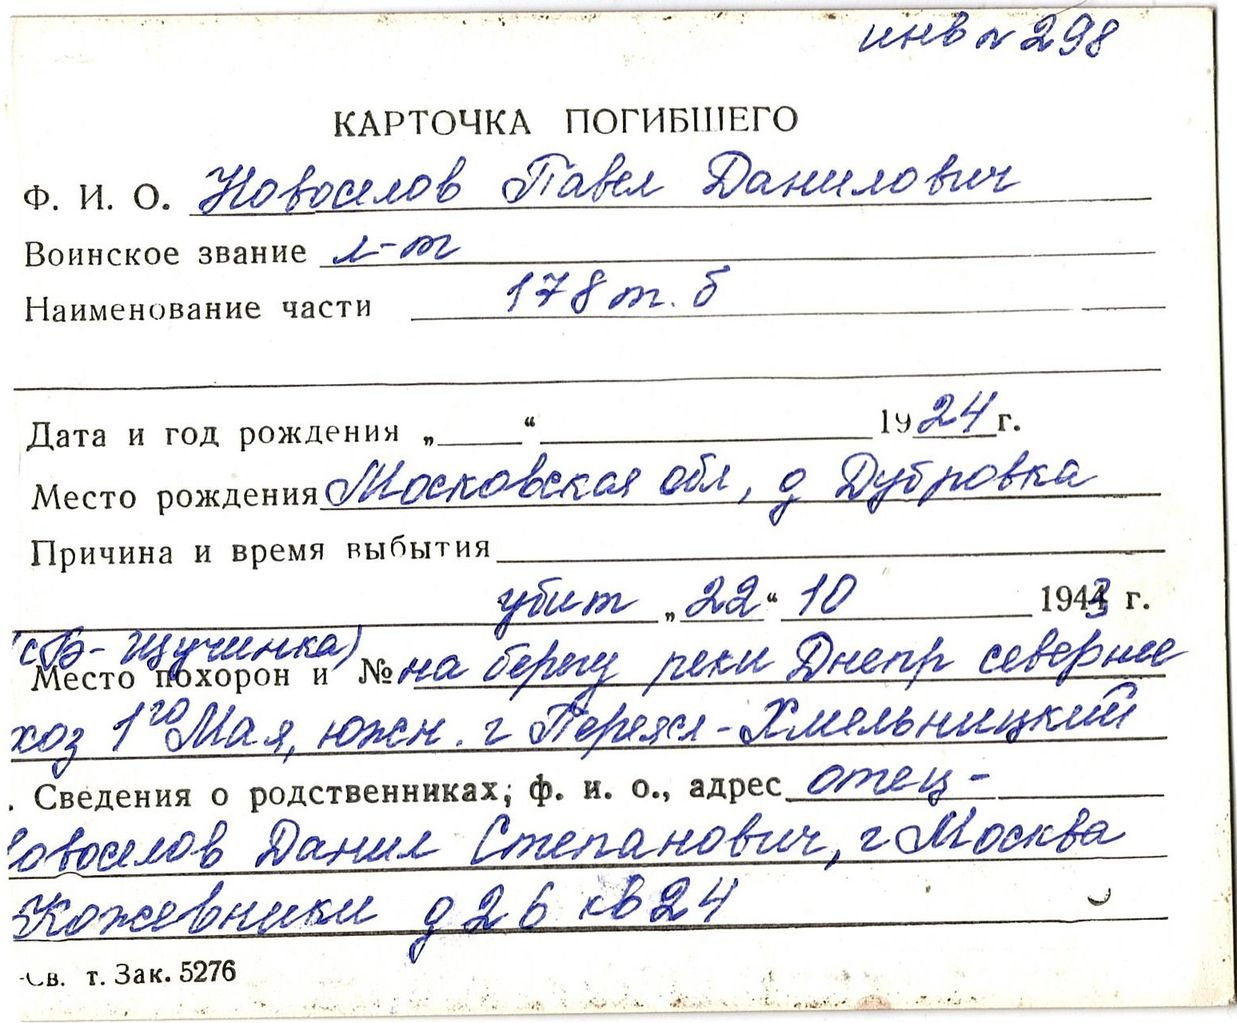 инв № 298
КАРТОЧКА ПОГИБШЕГО
Ф. И. О. Новоселов Павел Данилович
Воинское звание л-т
Наименование части 178 т. б
Дата и год рождения „ “ 1924 г.
Место рождения Московская обл, д Дубровка
Причина и время выбытия
убит „22“ 10 1943 г.
(с Б-Щучинка)
Место похорон и № на берегу реки Днепр севернее
хоз 1го Мая, южн. г Переясл-Хмельницкий
. Сведения о родственниках, ф. и. о., адрес отец-
овоселов Данил Степанович, г Москва
Кожевники д 26 кв 24
-Св. т. Зак. 5276